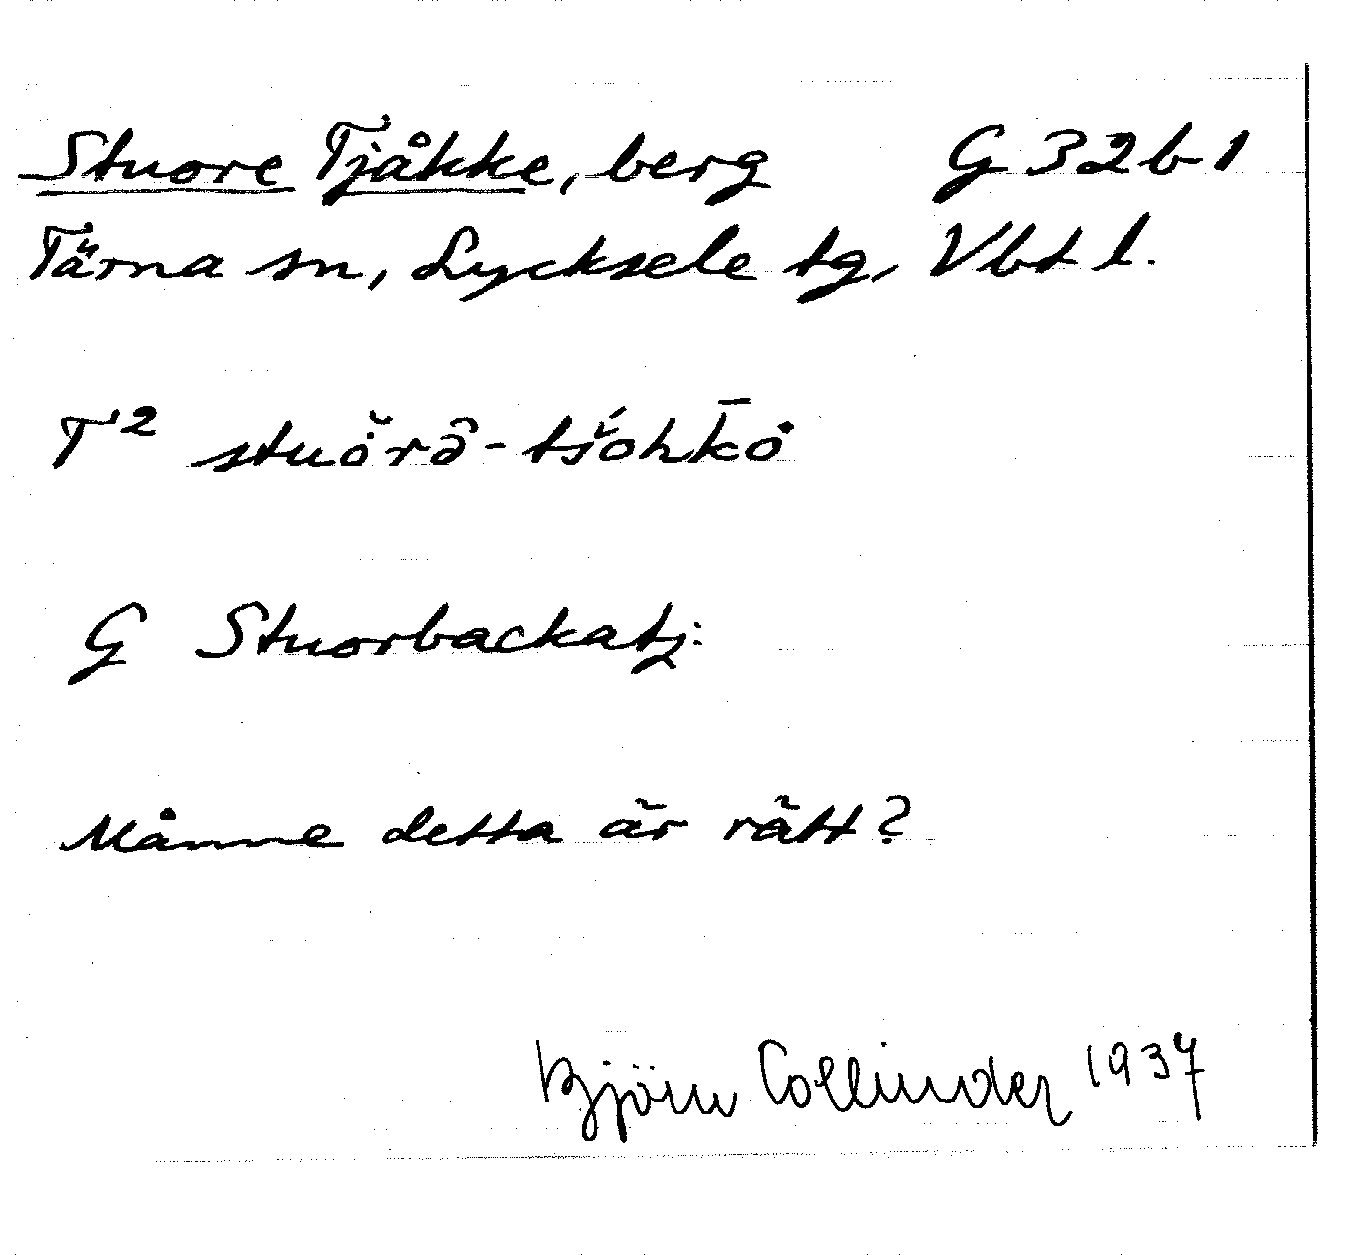 Stuore Tjåkke, berg G 32 b 1
Tärna sn, Lycksele tg, Vbt l.
T² stuŏrâ-tśohk̄ȯ
G Stuorbackatj:
Månne detta är rätt?
Björn Collinder 1937